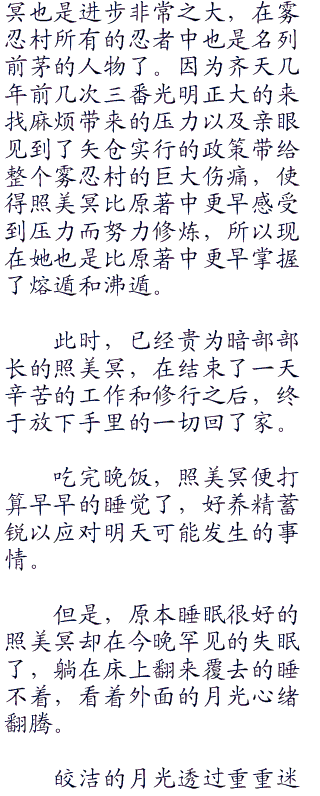 冥也是进步非常之大，在雾
忍村所有的忍者中也是名列
前茅的人物了。因为齐天几
年前几次三番光明正大的来
找麻烦带来的压力以及亲眼
见到了矢仓实行的政策带给
整个雾忍村的巨大伤痛，使
得照美冥比原著中更早感受
到压力而努力修炼，所以现
在她也是比原著中更早掌握
了熔遁和沸遁。
此时，已经贵为暗部部
长的照美冥，在结束了一天
辛苦的工作和修行之后，终
于放下手里的一切回了家。
吃完晚饭，照美冥便打
算早早的睡觉了，好养精蓄
锐以应对明天可能发生的事
情。
但是，原本睡眠很好的
照美冥却在今晚罕见的失眠
了，躺在床上翻来覆去的睡
不着，看着外面的月光心绪
翻腾。
皎洁的月光透过重重迷